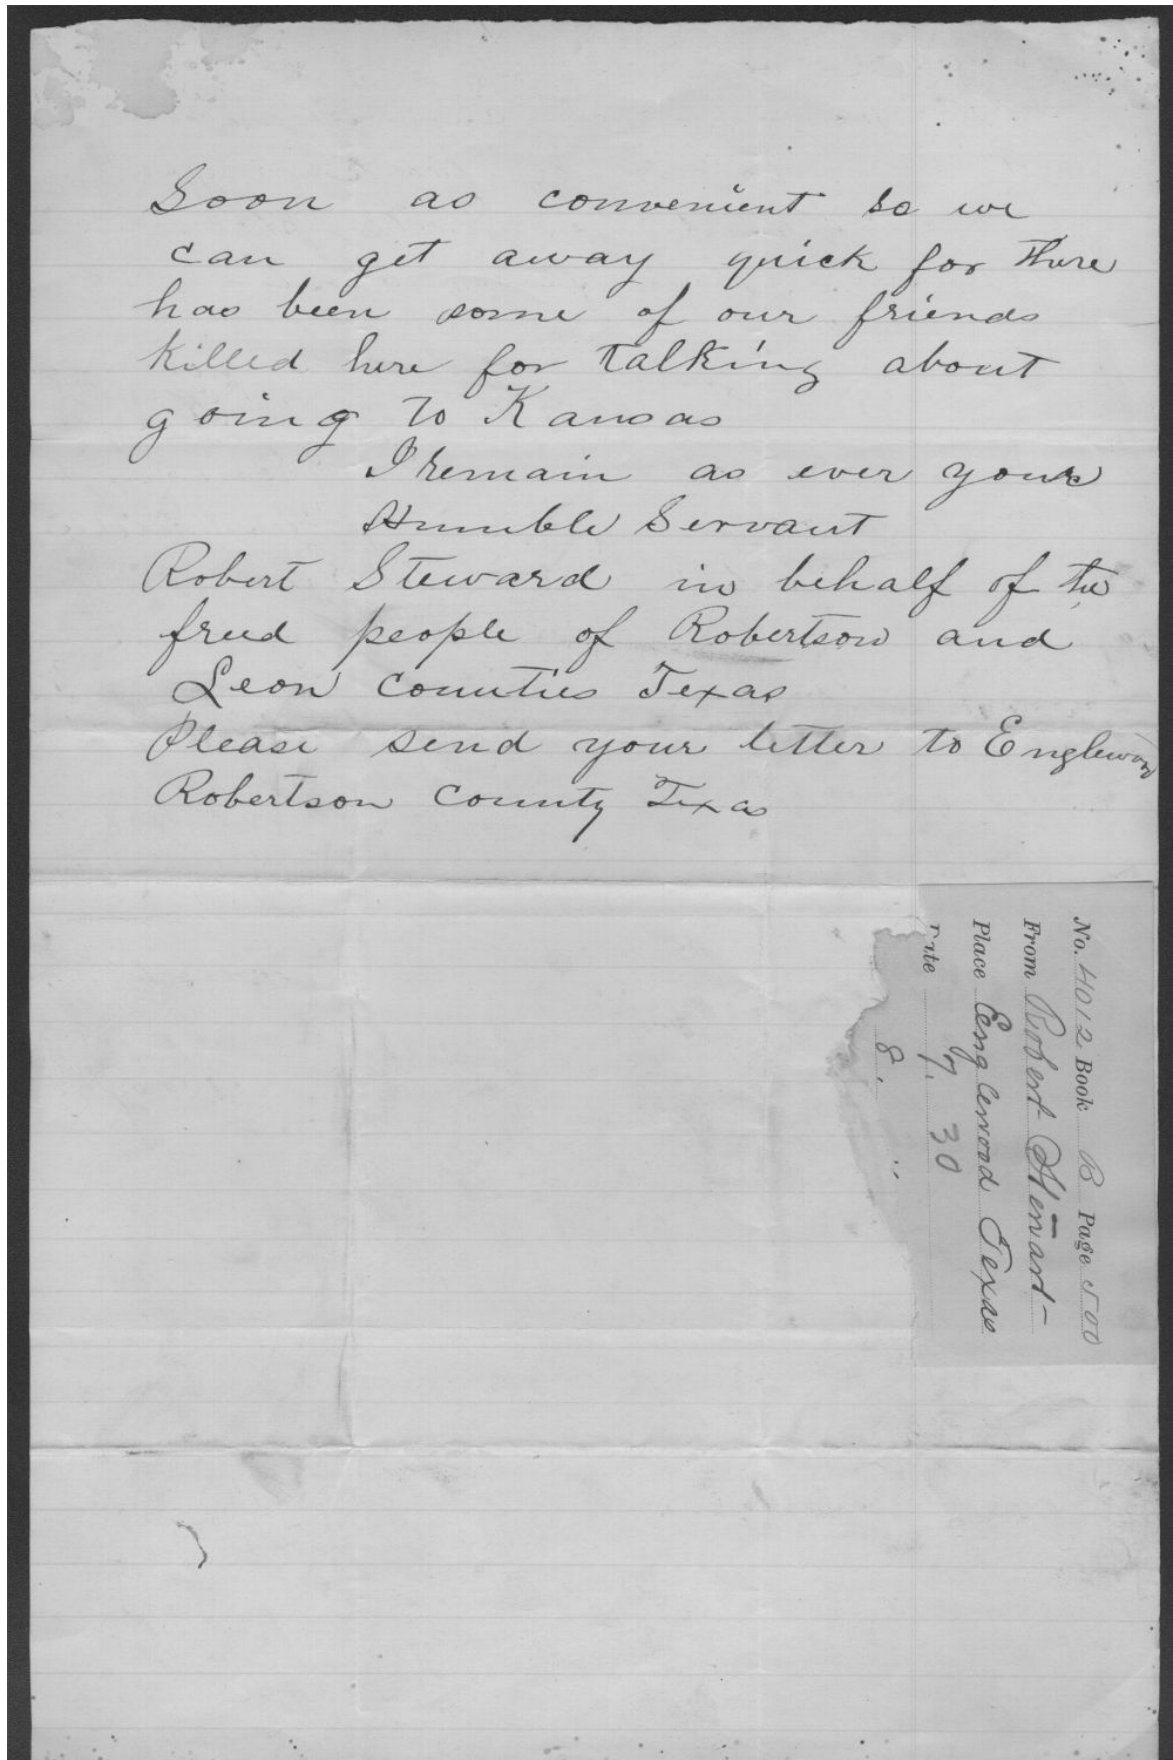 Soon as convenient so we
can get away quick for there
has been some of our friends
killed here for talking about
going to Kansas
I remain as ever yours
Humble Servant
Robert Steward in behalf of the
freed people of Robertson and
Leon Counties Texas
Please send your letter to Englewood
Robertson County Texas
No. 4012 Book B Page 500
From Robert Stewart
Place Englewood Texas
Date 7. 30
8. "